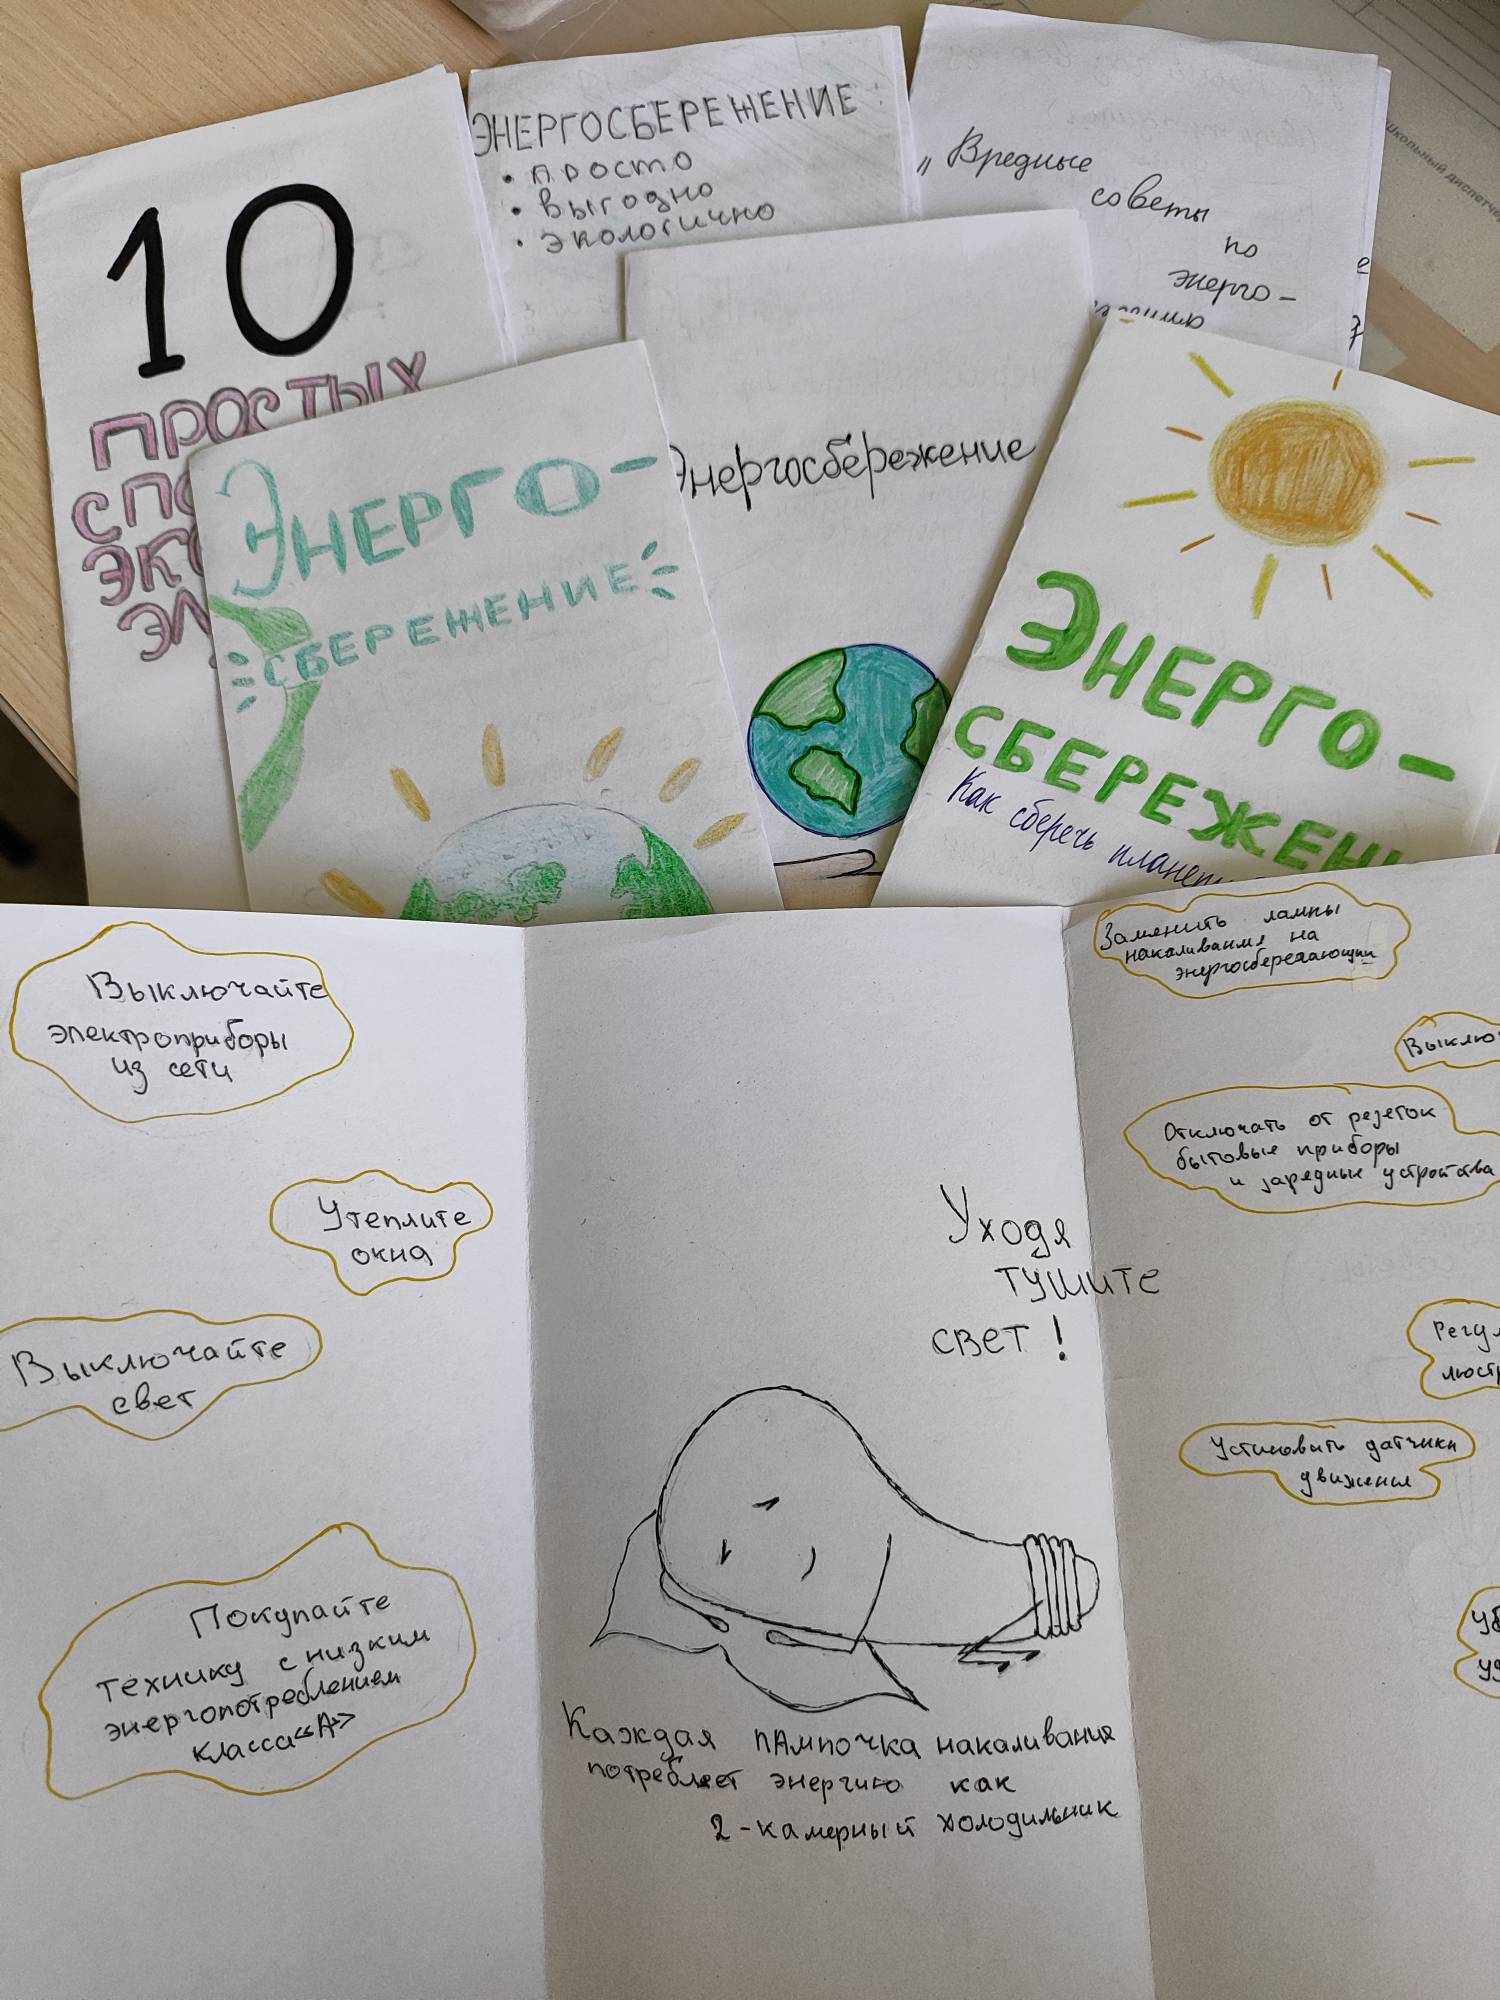 10
ПРОСТЫХ
ЭНЕРГОСБЕРЕЖЕНИЕ
• просто
• выгодно
• экологично
„Вредные
советы
по
энерго-
Школьный диспетчер
Энерго-
сбережение
Энергосбережение
Энерго-
Как сберечь
Выключайте
электроприборы
из сети
Утеплите
окна
Выключайте
свет
Покупайте
технику с низким
энергопотреблением
класса «А»
Уходя
тушите
свет!
Каждая лампочка накаливания
потребляет энергию как
2-камерный холодильник
Заменить лампы
накаливания на
Отключать от розеток
бытовые приборы
и зарядные устройства
Установить датчики
движения